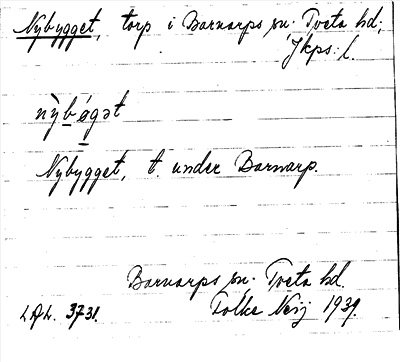 Nybygget, torp i Barnarps sn. Tveta hd;
Jkps. l.
nỳbǿgət
Nybygget, t. under Barnarp.
Barnarps sn. Tveta hd.
3731. Folke Neij 1939.